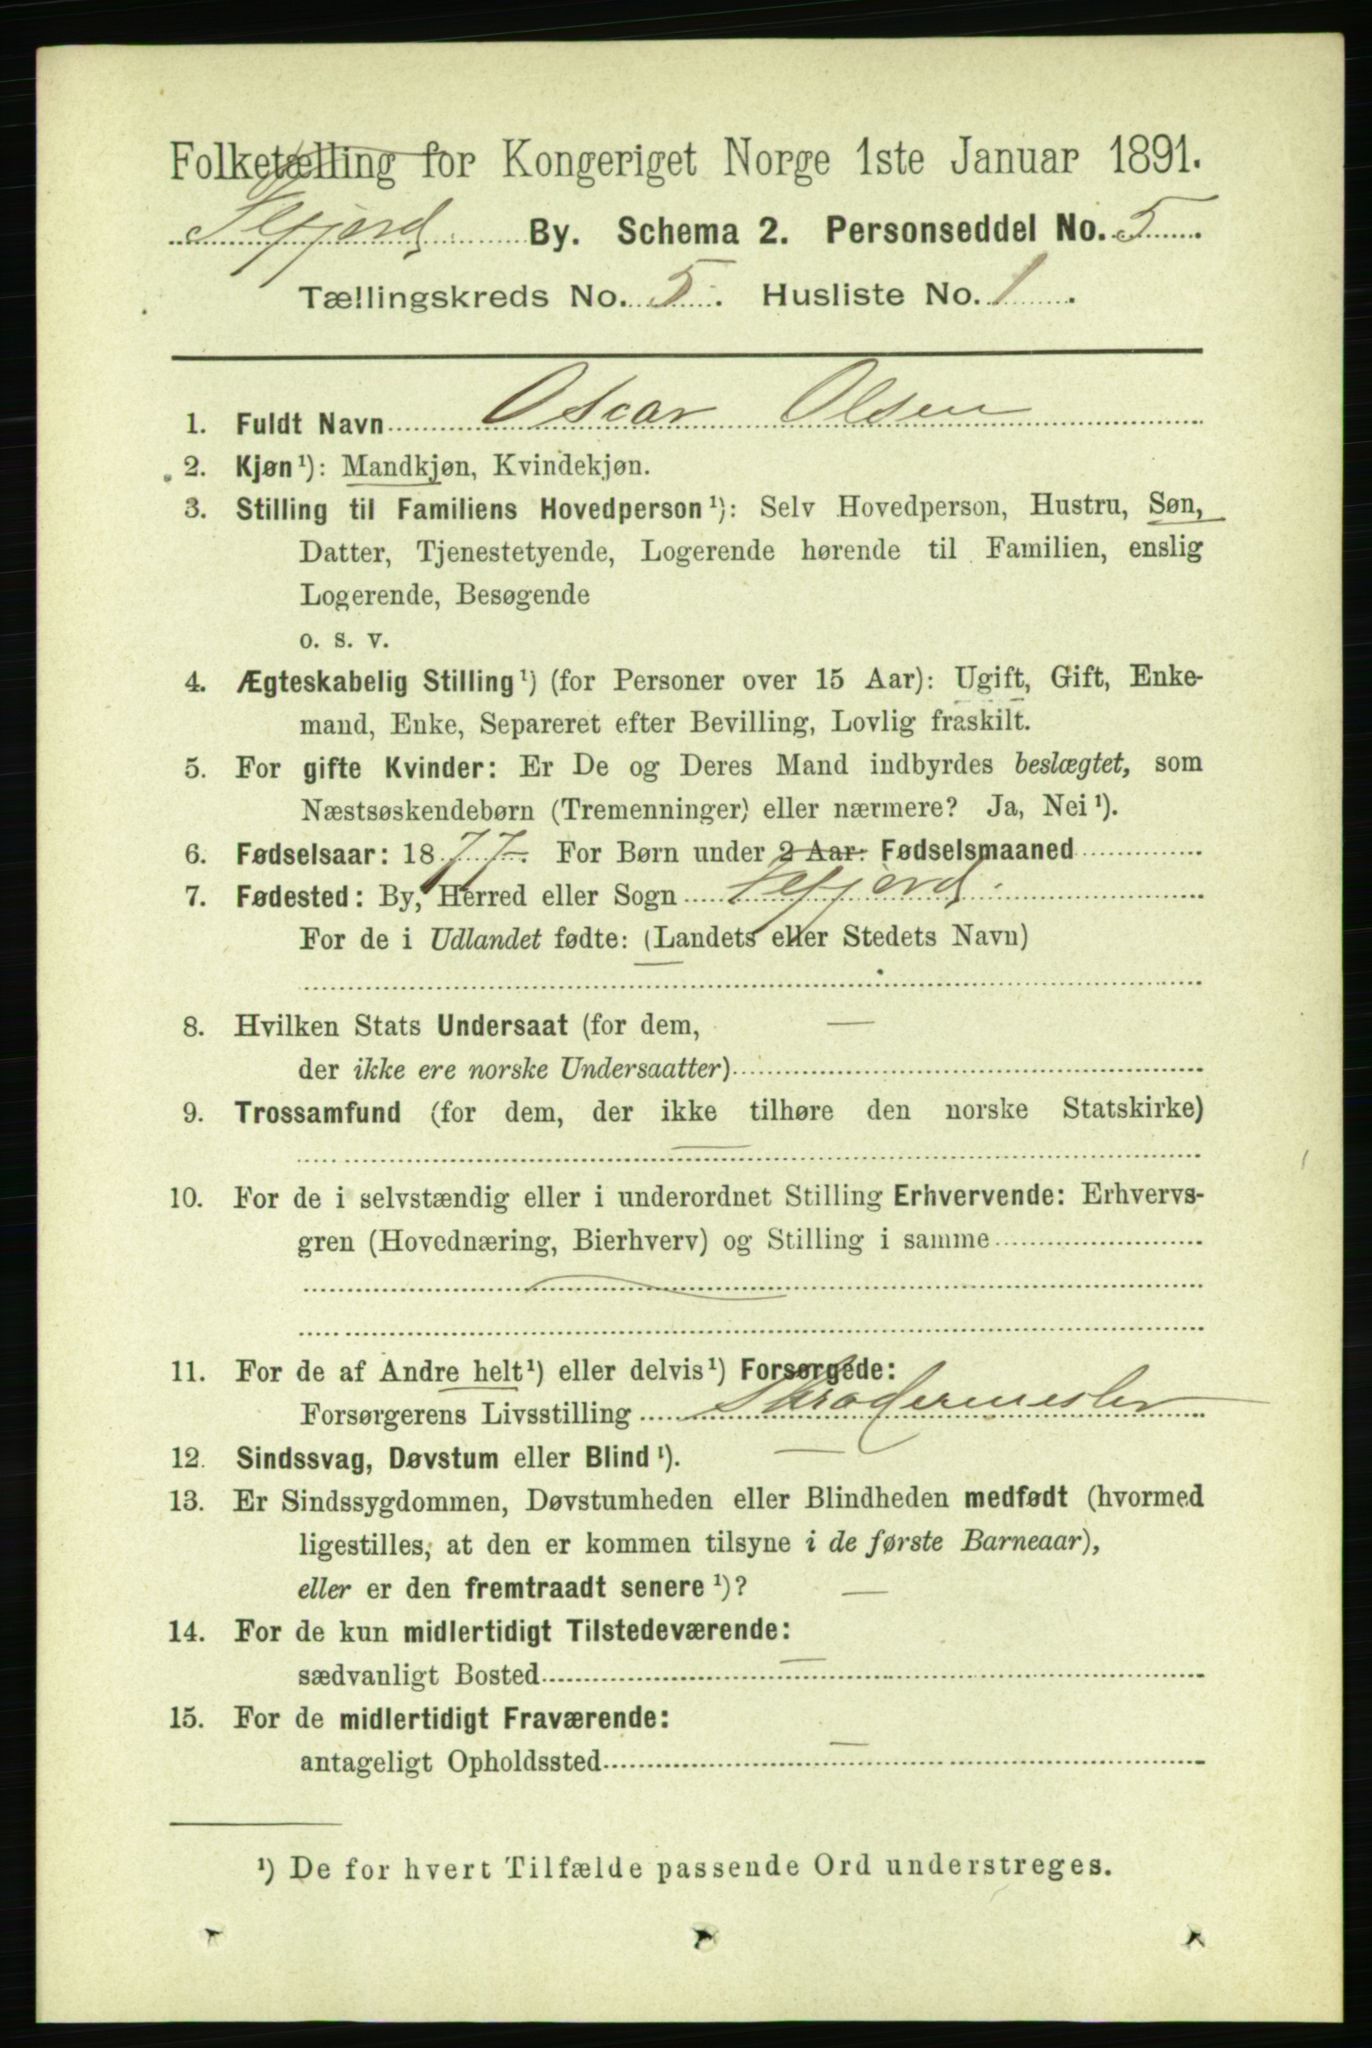 Folketælling for Kongeriget Norge 1ste Januar 1891.
Flefjord By. Schema 2. Personseddel No. 5
Tællingskreds No. 5. Husliste No. 1.
1. Fuldt Navn Oscar Olsen
2. Kjøn¹): Mandkjøn, Kvindekjøn.
3. Stilling til Familiens Hovedperson¹): Selv Hovedperson, Hustru, Søn,
Datter, Tjenestetyende, Logerende hørende til Familien, enslig
Logerende, Besøgende
o. s. v.
4. Ægteskabelig Stilling¹) (for Personer over 15 Aar): Ugift, Gift, Enke-
mand, Enke, Separeret efter Bevilling, Lovlig fraskilt.
5. For gifte Kvinder: Er De og Deres Mand indbyrdes beslægtet, som
Næstsøskendebørn (Tremenninger) eller nærmere? Ja, Nei¹).
6. Fødselsaar: 1877. For Børn under 2 Aar: Fødselsmaaned
7. Fødested: By, Herred eller Sogn Flefjord.
For de i Udlandet fødte: (Landets eller Stedets Navn)
8. Hvilken Stats Undersaat (for dem, —
der ikke ere norske Undersaatter)
9. Trossamfund (for dem, der ikke tilhøre den norske Statskirke)
—
10. For de i selvstændig eller i underordnet Stilling Erhvervende: Erhvervs-
gren (Hovednæring, Bierhverv) og Stilling i samme
11. For de af Andre helt¹) eller delvis¹) Forsørgede:
Forsørgerens Livsstilling Skrædermester
12. Sindssvag, Døvstum eller Blind¹). —
13. Er Sindssygdommen, Døvstumheden eller Blindheden medfødt (hvormed
ligestilles, at den er kommen tilsyne i de første Barneaar),
eller er den fremtraadt senere¹)? —
14. For de kun midlertidigt Tilstedeværende:
sædvanligt Bosted —
15. For de midlertidigt Fraværende:
antageligt Opholdssted —
¹) De for hvert Tilfælde passende Ord understreges.